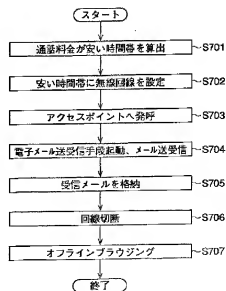 スタート
通話料金が安い時間帯を算出 S701
安い時間帯に無線回線を設定 S702
アクセスポイントへ発呼 S703
電子メール送受信手段起動、メール送受信 S704
受信メールを格納 S705
回線切断 S706
オフラインブラウジング S707
終了